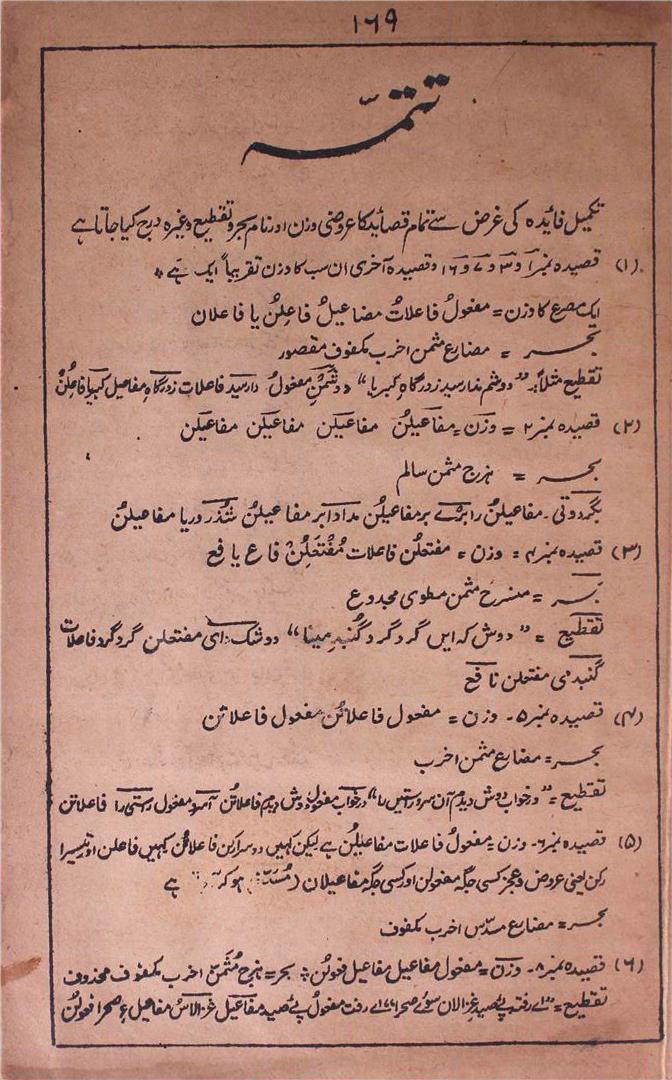 ۱۶۹
تتمہ
تکمیل فائدہ کی غرض سے تمام قصائد کا عروضی وزن اور نام بحر و تقطیع وغیرہ درج کیا جاتا ہے
(۱) قصیدہ نمبر ۱ و ۳ و ۷ و ۱۶ و قصیدہ آخری ان سب کا وزن تقریباً ایک ہے *
ایک مصرع کا وزن = مفعولُ فاعلاتُ مفاعیلُ فاعِلُن یا فاعلان
بحر = مضارع مثمن اخرب مکفوف مقصور
تقطیع مثلاً = رسید ز درگاہِ کبریا" مفعولُ فاعلات ز درگاہِ مفاعیل کبریا فاعِلُن
(۲) قصیدہ نمبر ۲ = وزن = مفاعیلُن مفاعیلن مفاعیلن مفاعیلن
بحر = ہزج مثمن سالم
بگردوتی . مفاعیلن را برے بر مفاعیلن مداد ابر مفاعیلن شُدْز دریا مفاعیلن
(۳) قصیدہ نمبر ۴ = وزن = مفتعلن فاعلات مُفْتَعِلُنْ فاع یا فع
بحر = منسرح مثمن مطوی مجدوع
تقطیع = "دوش کہ ایں گرد گرد گنبدِ مینا" دوش ک ای مفتعلن گرد گرد فاعلات
گنبدمی مفتعلن نا فع
(۴) قصیدہ نمبر ۵ - وزن = مفعول فاعلاتُن مفعول فاعلاتن
بحر = مضارع مثمن اخرب
تقطیع = "در خواب دوش دیدم آن سرو راستیں را" در خواب مفعول دوش دیدم فاعلاتن آنسرو مفعول راستی را فاعلاتن
(۵) قصیدہ نمبر ۶ - وزن = مفعولُ فاعلات مفاعیلُن ہے لیکن کہیں دوسرا رکن فاعلاتُن کہیں فاعلن اور تیسرا
رکن یعنی عروض و عجز کسی جگہ مفعولن اور کسی جگہ مفاعیلان ہو کر ہے
بحر = مضارع مسدّس اخرب مکفوف
(۶) قصیدہ نمبر ۸ - وزن = مفعول مفاعیل مفاعیل فعولُن * بحر = ہزج مُثمّن اخرب مکفوف محذوف
تقطیع = "اے رفتہ پئے صید غزالاں سوئے صحرا" اے رفت مفعولُ پئے صید مفاعیل غزالاسُ مفاعیل ءِ صحرا فعولُن